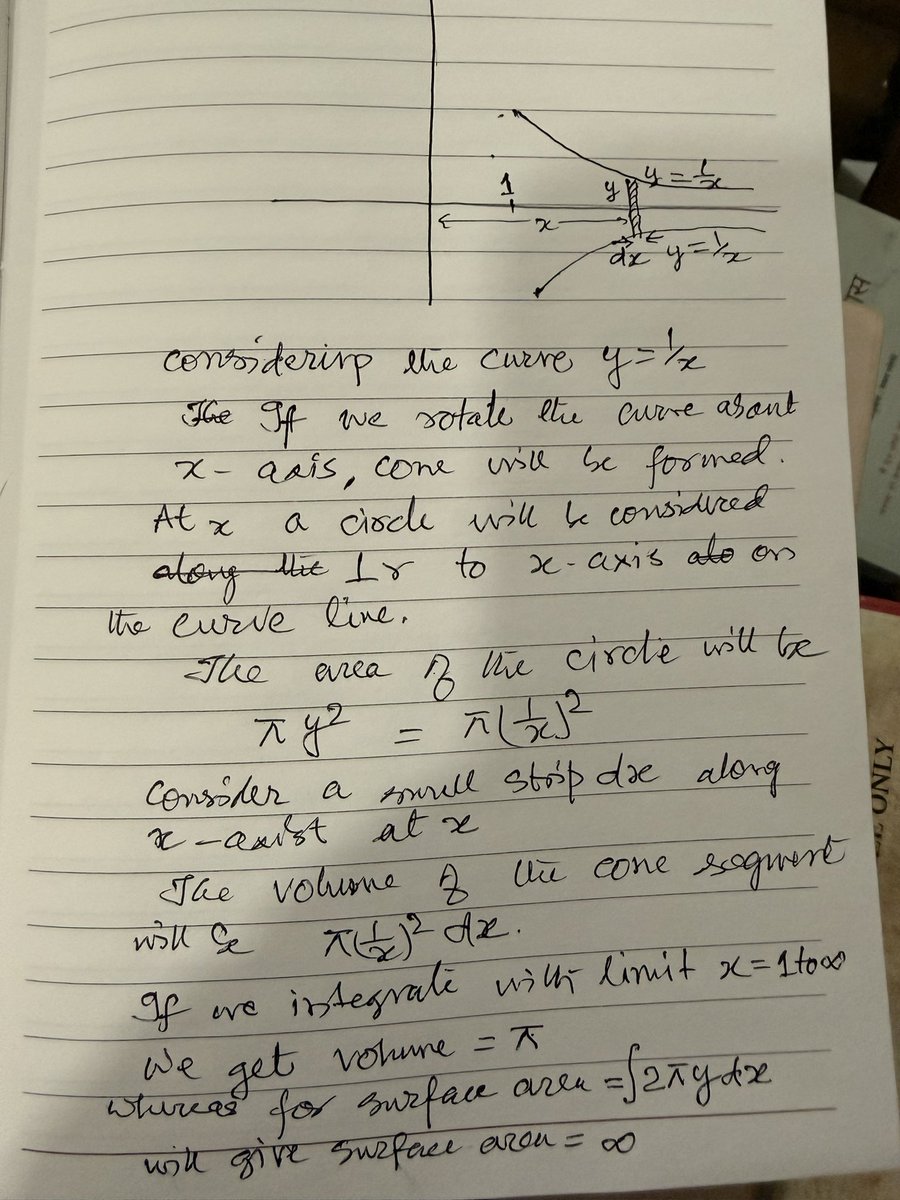 1
y
y = 1/x
x
dx
y = 1/x
considering the curve y = 1/x
The If we rotate the curve about
x - axis, cone will be formed.
At x a circle will be considered
along the ⊥r to x-axis alo on
the curve line.
The area of the circle will be
πy² = π(1/x)²
Consider a small strip dx along
x-axist at x
The volume of the cone segment
will be π(1/x)² dx.
If we integrate with limit x = 1 to ∞
We get volume = π
whereas for surface area = ∫2πy dx
will give surface area = ∞
E ONLY